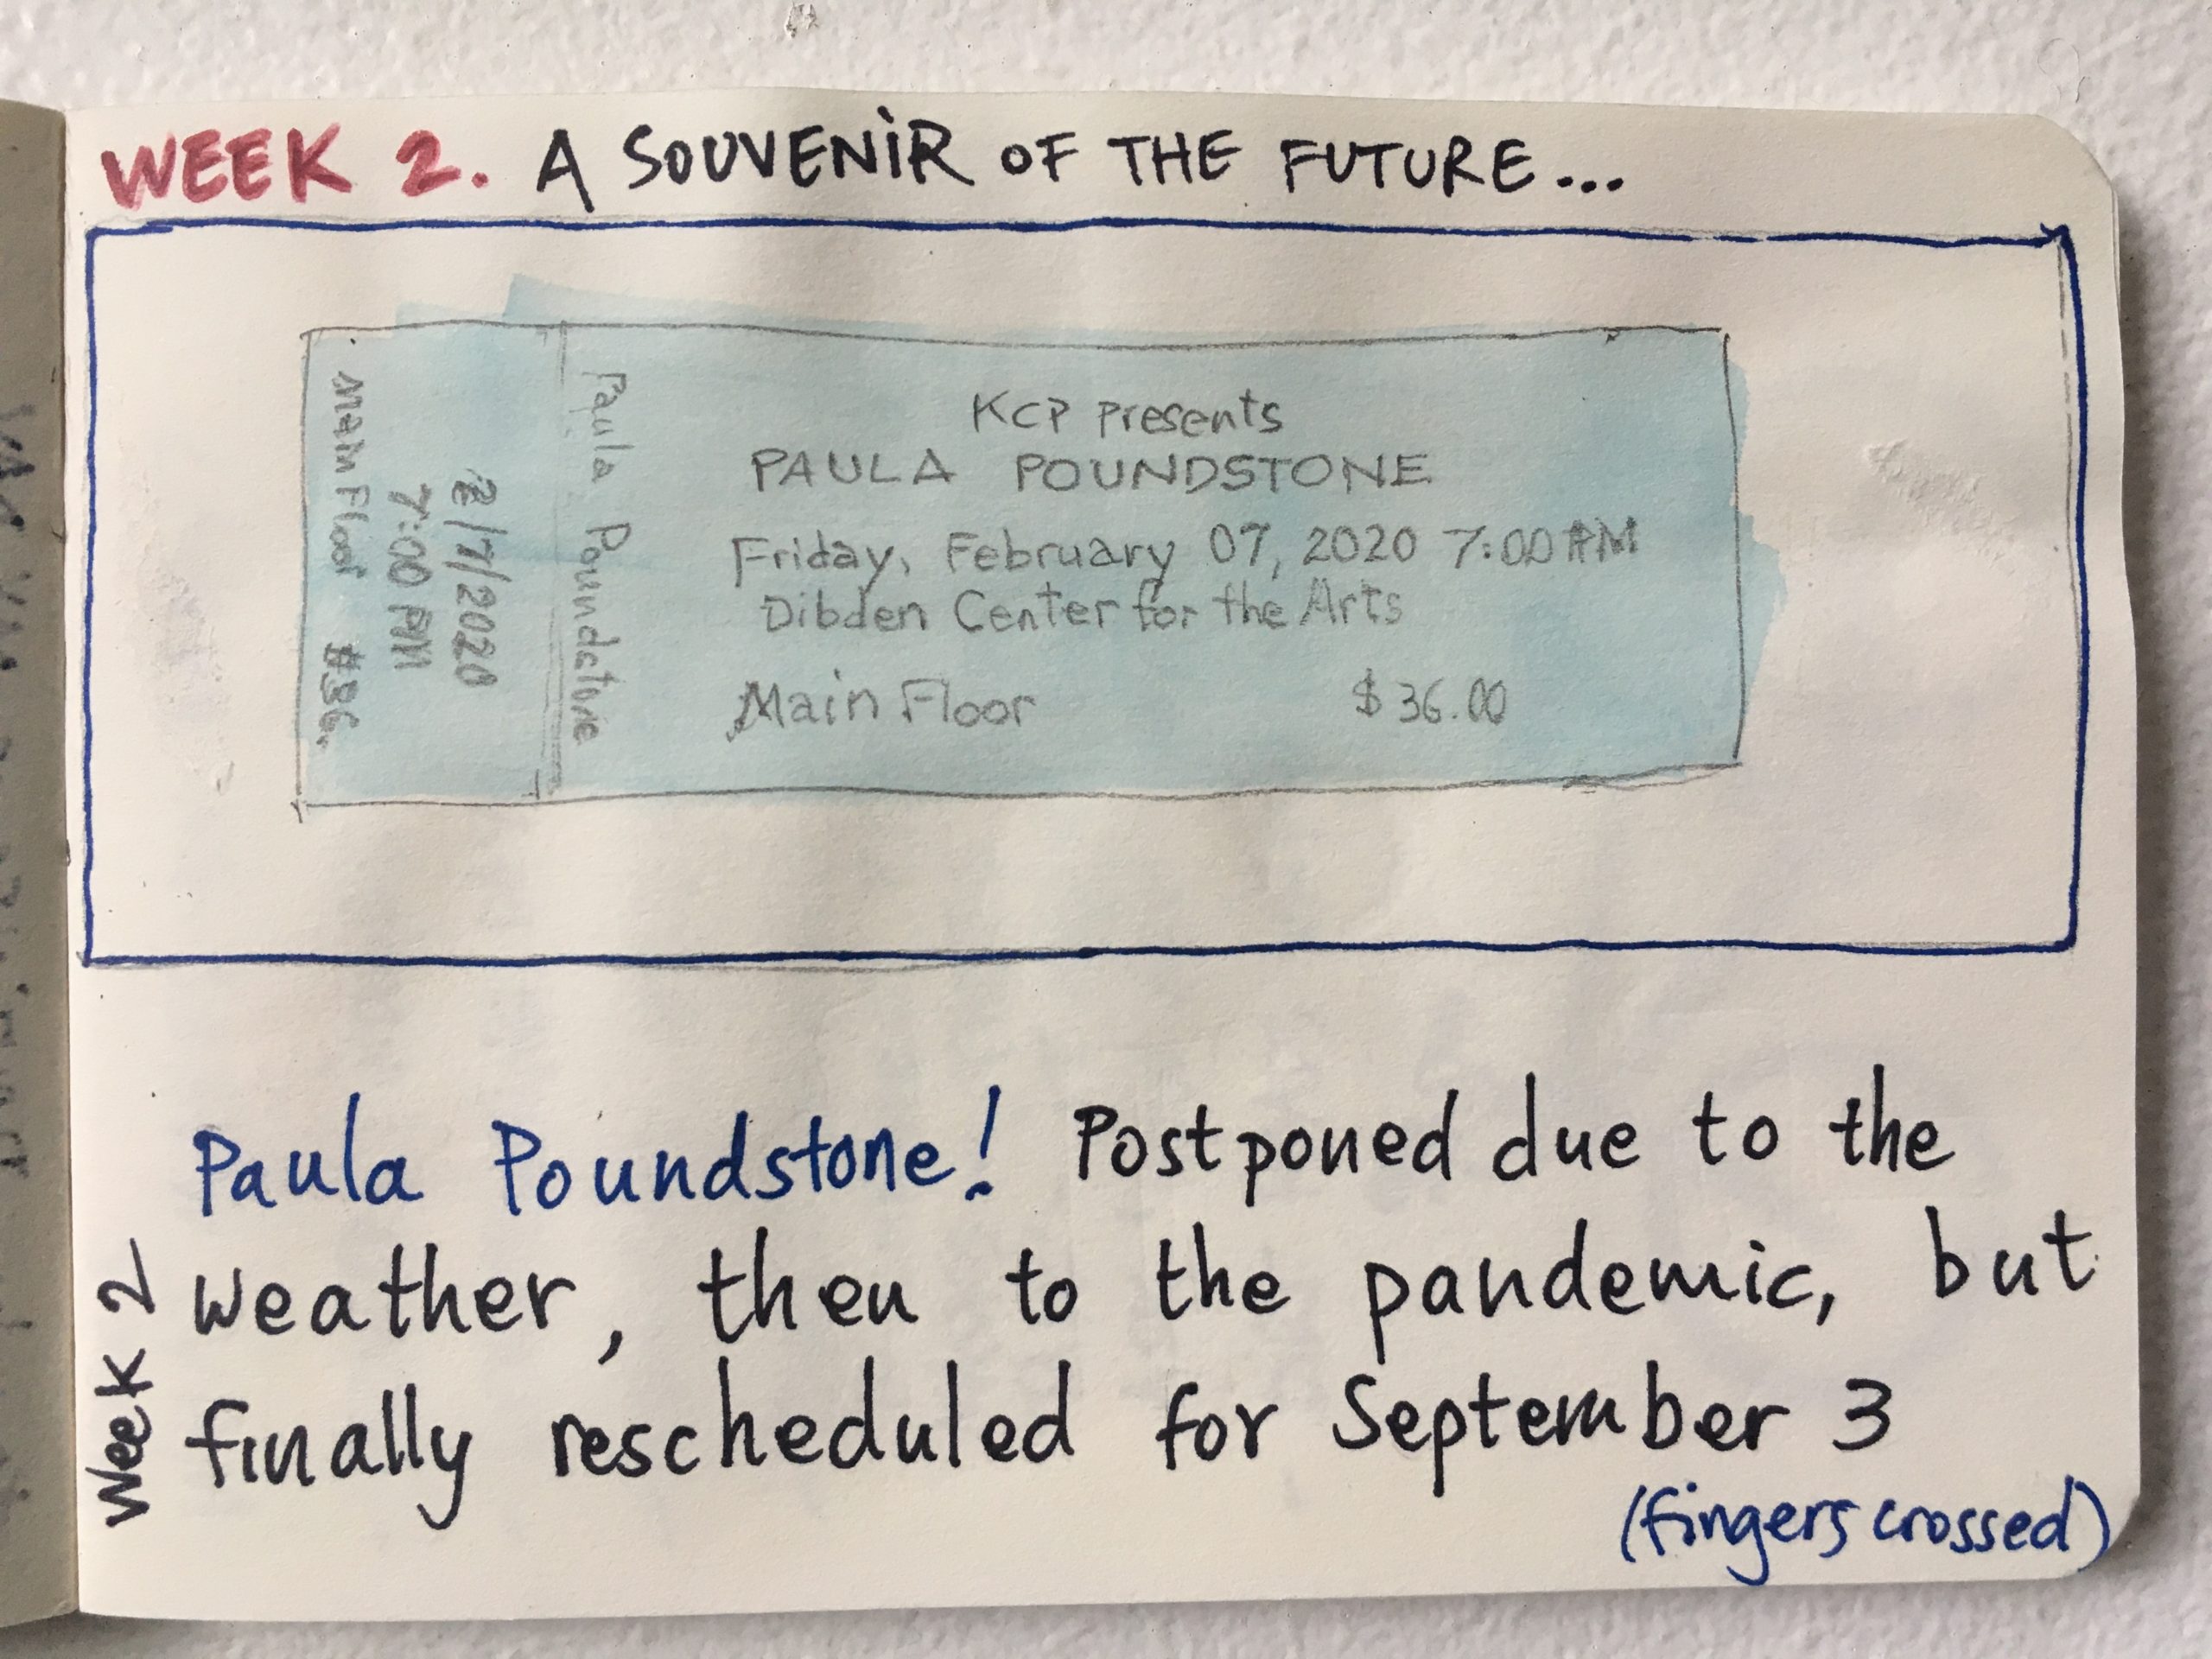 WEEK 2. A SOUVENIR OF THE FUTURE...
KCP presents
PAULA POUNDSTONE
Friday, February 07, 2020 7:00 PM
Dibden Center for the Arts
Main Floor $36.00
Paula Poundstone
2/7/2020
7:00 PM
Main Floor
Paula Poundstone! Postponed due to the
weather, then to the pandemic, but
finally rescheduled for September 3
(fingers crossed)
Week 2